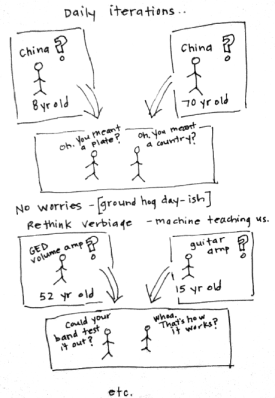 Daily iterations..
China ?
8yr old
China ?
70 yr old
Oh, you meant
a plate?
Oh, you meant
a country?
No worries -[ground hog day-ish]
Rethink verbiage - machine teaching us.
GED
volume amp ?
52 yr old
guitar
amp ?
15 yr old
Could your
band test
it out?
whoa.
That's how
it works?
etc.